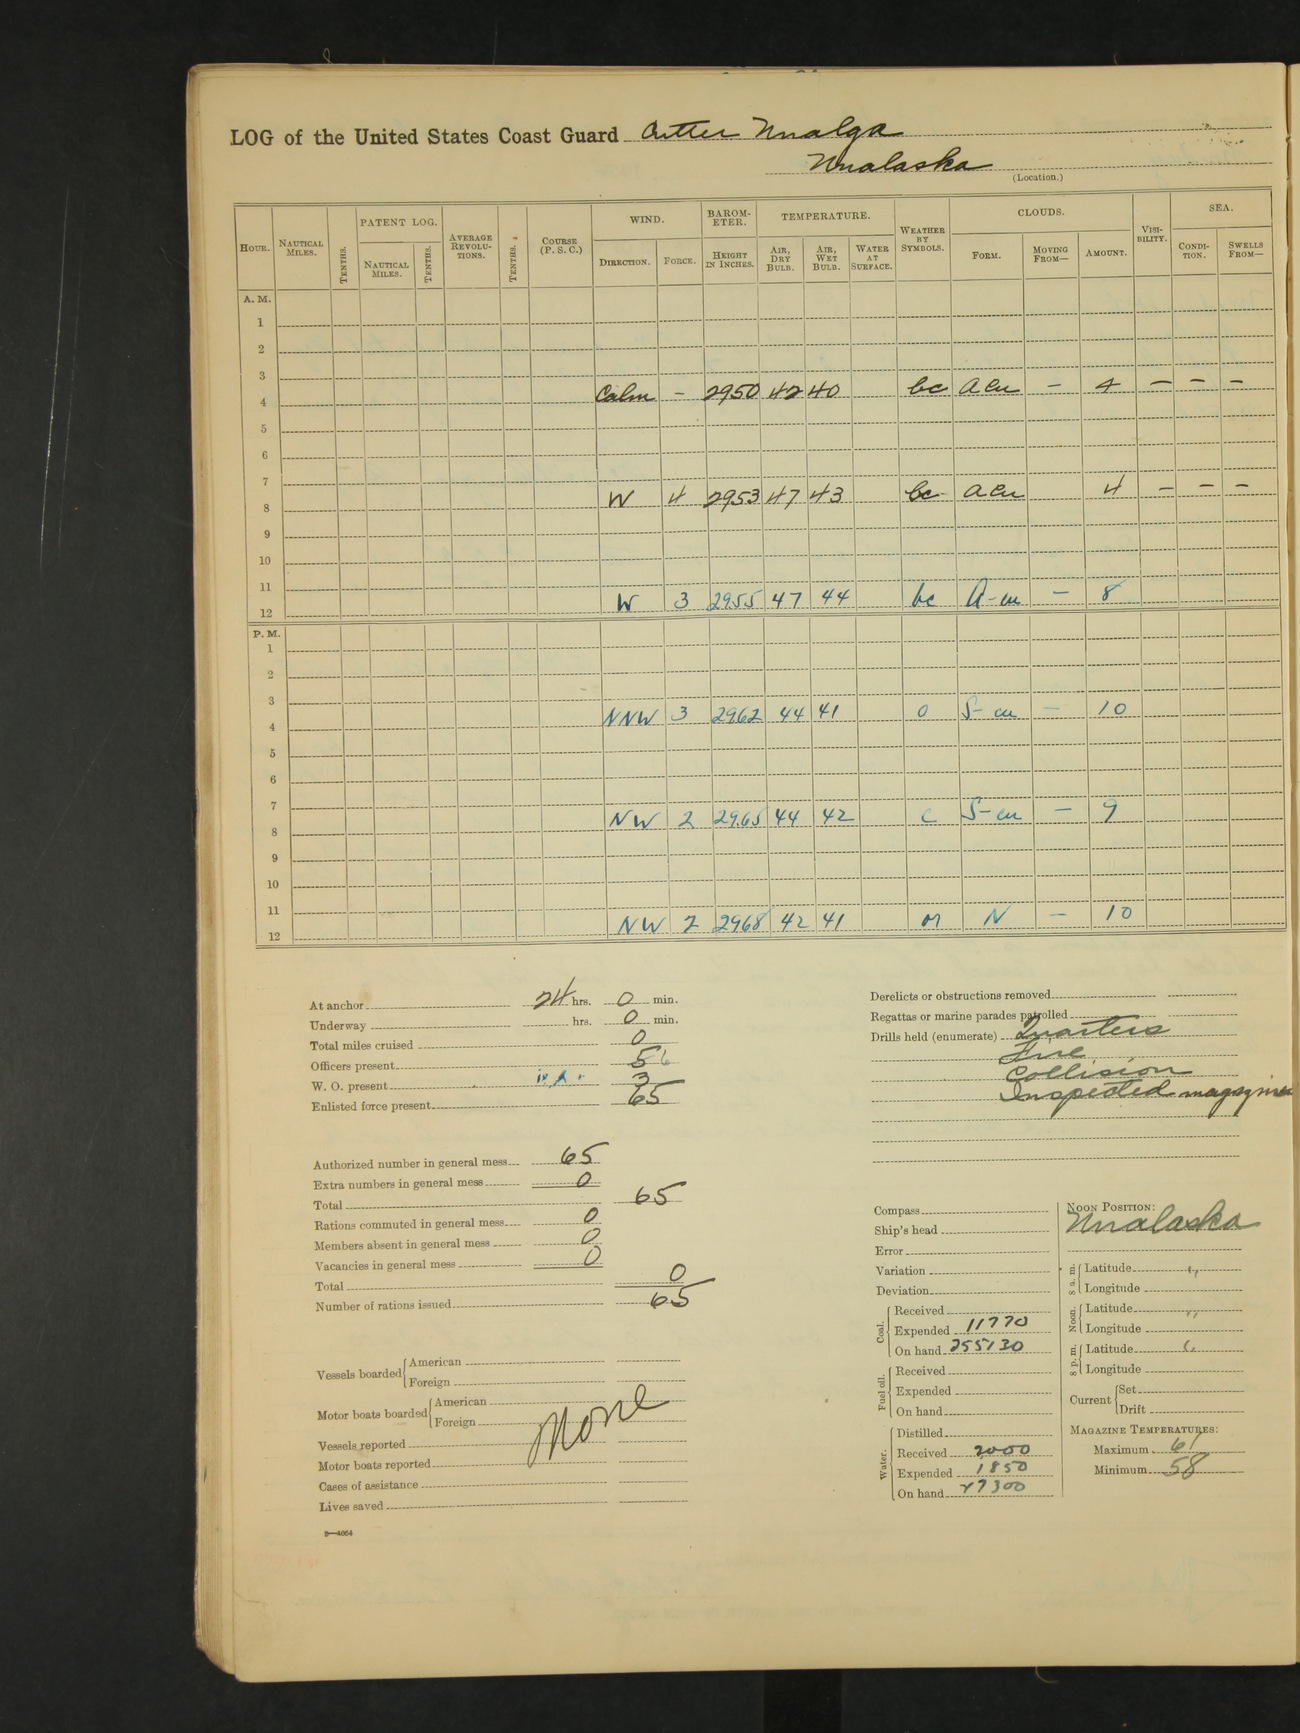 LOG of the United States Coast Guard Cutter Unalga
Unalaska
(Location.)
HOUR. NAUTICAL MILES. TENTHS. PATENT LOG. NAUTICAL MILES. TENTHS. AVERAGE REVOLUTIONS. TENTHS. COURSE (P. S. C.) WIND. DIRECTION. FORCE. BAROMETER. HEIGHT IN INCHES. TEMPERATURE. AIR, DRY BULB. AIR, WET BULB. WATER AT SURFACE. WEATHER BY SYMBOLS. CLOUDS. FORM. MOVING FROM— AMOUNT. VISIBILITY. SEA. CONDITION. SWELLS FROM—
A. M.
1
2
3
4 Calm - 2950 42 40 bc a cu - 4 - - -
5
6
7
8 W 4 2953 47 43 bc a cu 4 - - -
9
10
11
12 W 3 2955 47 44 bc A-cu - 8
P. M.
1
2
3
4 NNW 3 2962 44 41 o S-cu - 10
5
6
7
8 NW 2 2965 44 42 c S-cu - 9
9
10
11
12 NW 2 2968 42 41 om N - 10
At anchor 24 hrs. 0 min.
Underway hrs. 0 min.
Total miles cruised 0
Officers present 5 6
W. O. present 3
Enlisted force present 65
Authorized number in general mess 65
Extra numbers in general mess 0
Total 65
Rations commuted in general mess 0
Members absent in general mess 0
Vacancies in general mess 0
Total 0
Number of rations issued 65
Vessels boarded American
Foreign
Motor boats boarded American
Foreign
None
Vessels reported
Motor boats reported
Cases of assistance
Lives saved
9—4064
Derelicts or obstructions removed
Regattas or marine parades patrolled
Drills held (enumerate) Quarters
Fire
Collision
Inspected magazines
Compass
Ship's head
Error
Variation
Deviation
Coal. Received
Expended 11770
On hand 255130
Fuel oil. Received
Expended
On hand
Water. Distilled
Received 2000
Expended 1850
On hand 27300
NOON POSITION:
Unalaska
8 a. m. Latitude "
Longitude
Noon. Latitude "
Longitude
8 p. m. Latitude "
Longitude
Current Set
Drift
MAGAZINE TEMPERATURES:
Maximum 61
Minimum 58